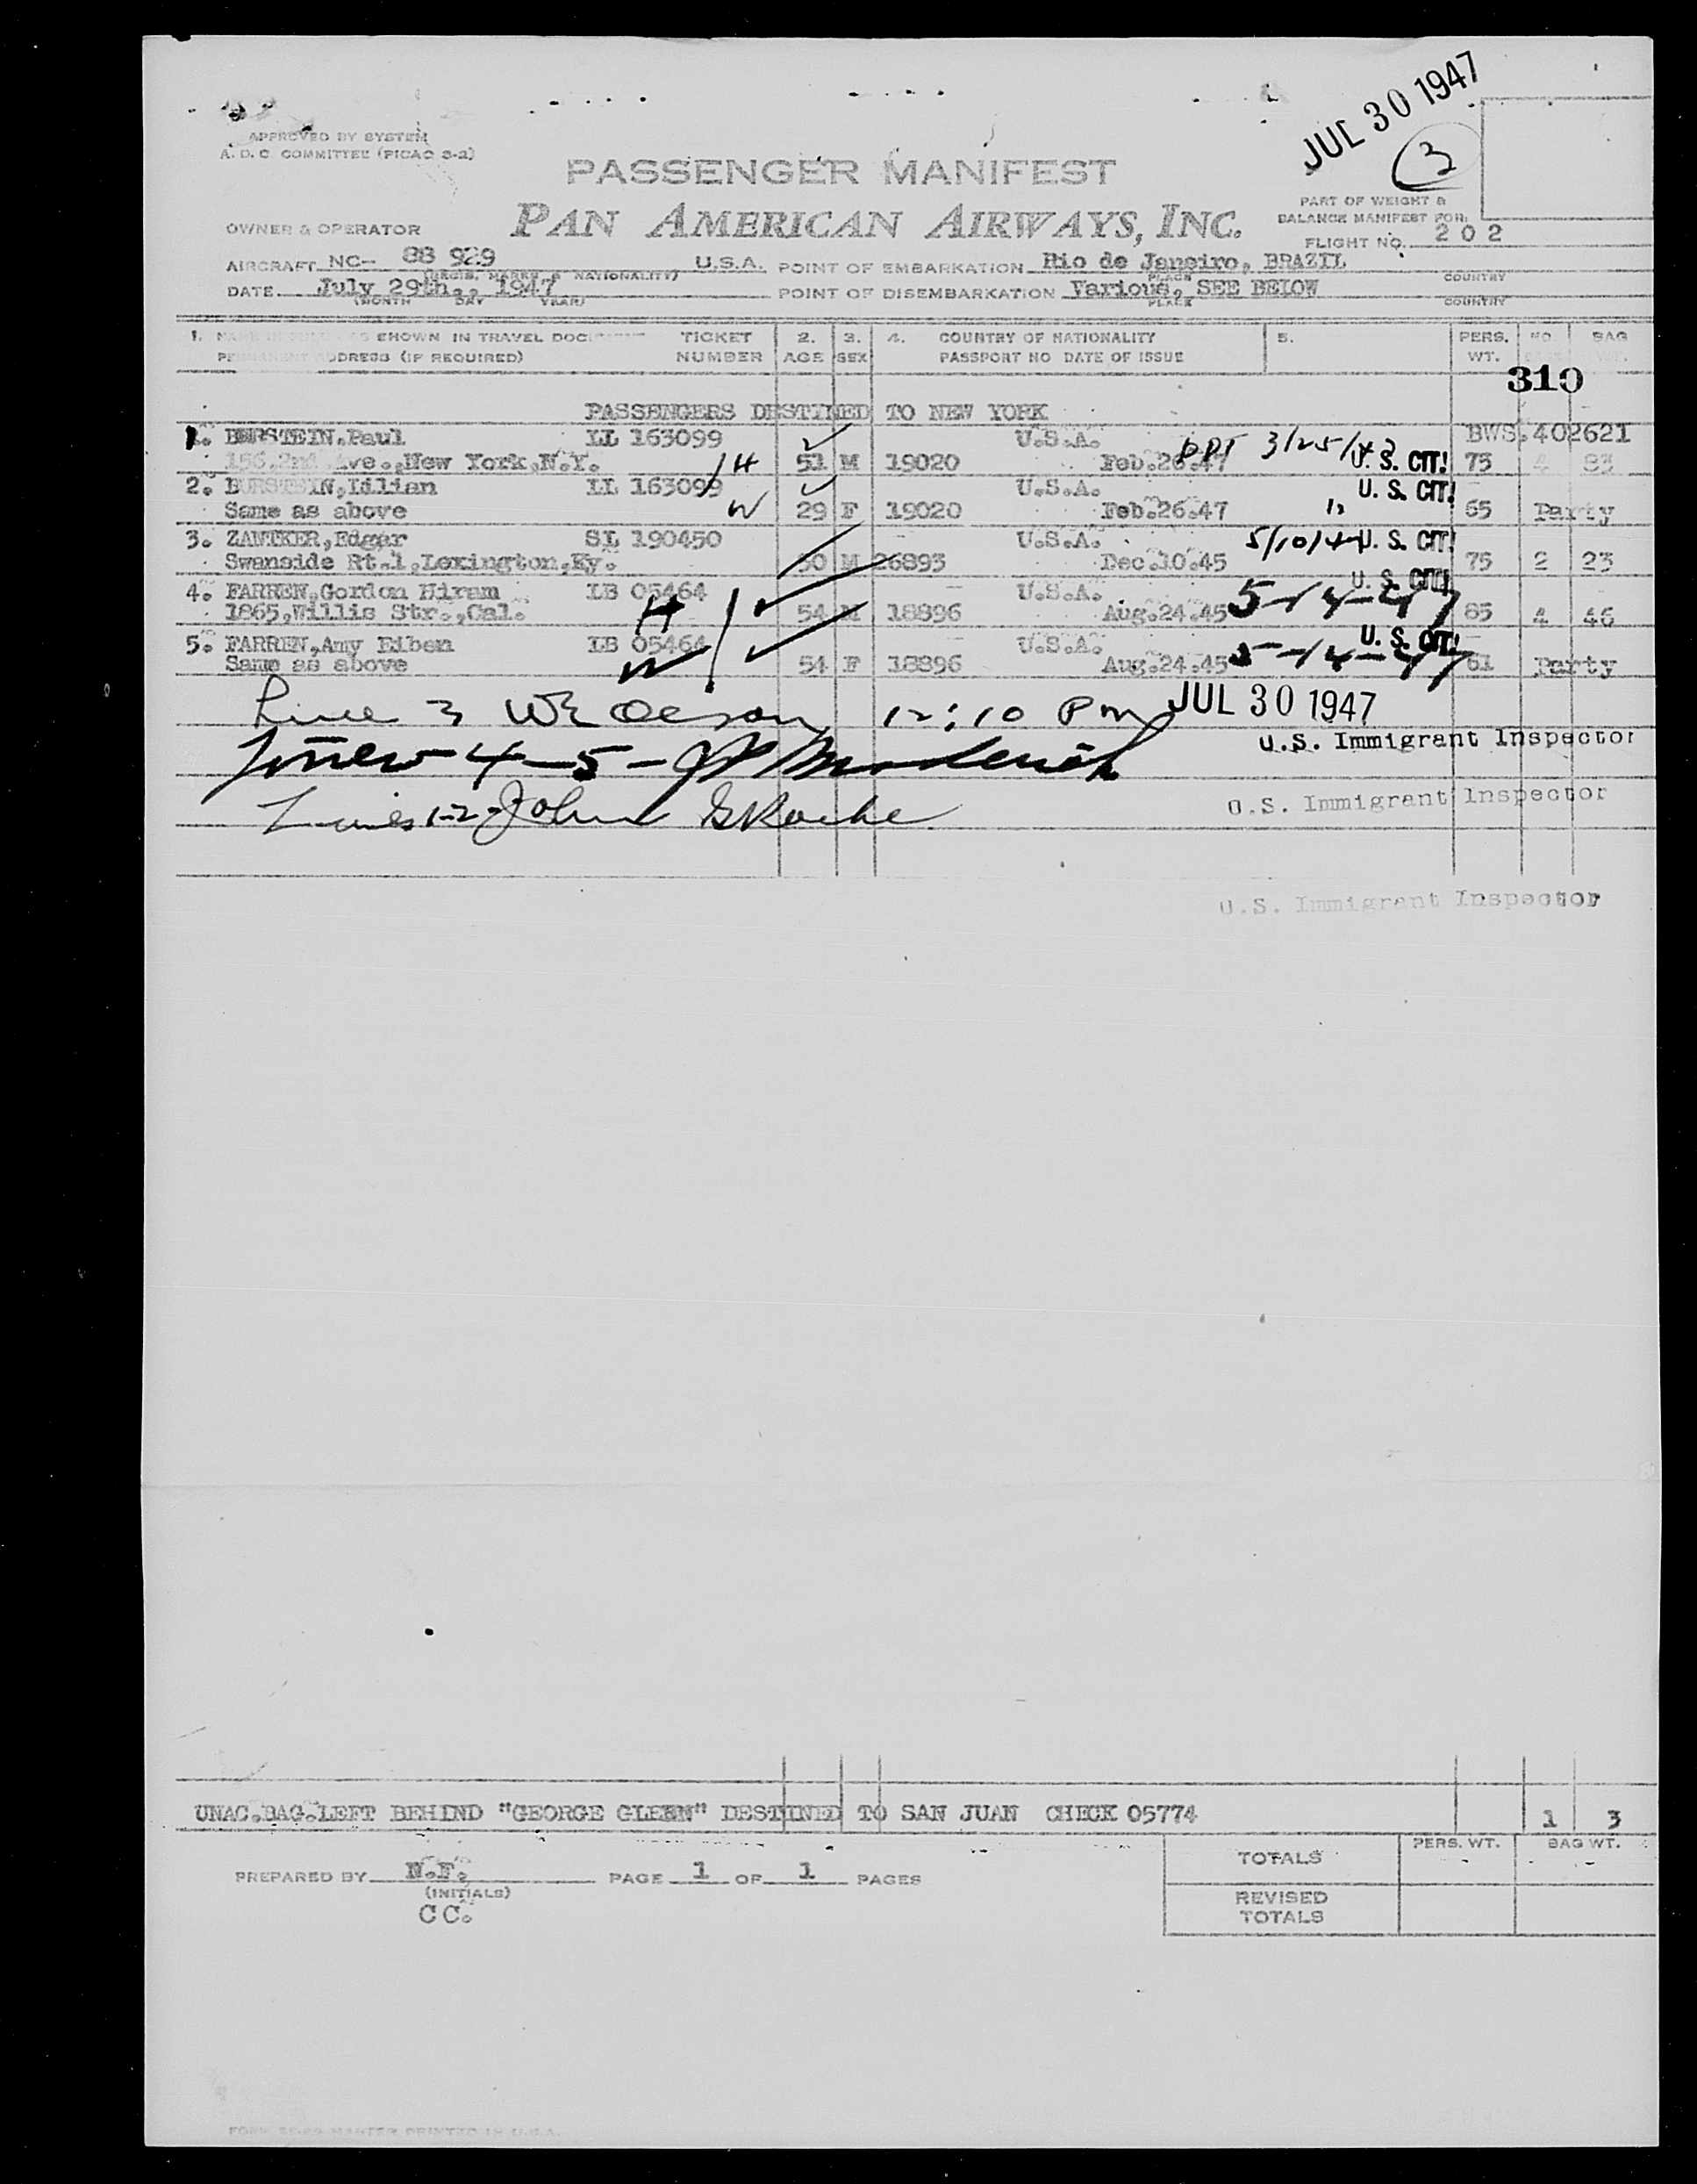 JUL 30 1947
3
APPROVED BY SYSTEM
A. D. C. COMMITTEE (PICAO 3-2)
PASSENGER MANIFEST
PAN AMERICAN AIRWAYS, INC.
PART OF WEIGHT &
BALANCE MANIFEST FOR:
FLIGHT NO. 202
OWNER & OPERATOR
AIRCRAFT NC- 88 929 U.S.A. POINT OF EMBARKATION Rio de Janeiro, BRAZIL
(REGIS. MARKS & NATIONALITY) PLACE COUNTRY
DATE July 29th., 1947 POINT OF DISEMBARKATION Various, SEE BELOW
(MONTH DAY YEAR) PLACE COUNTRY
1. SHOWN IN TRAVEL TICKET 2. 3. 4. COUNTRY OF NATIONALITY 5. PERS. NO BAG
ADDRESS (IF REQUIRED) NUMBER AGE SEX PASSPORT NO DATE OF ISSUE WT.
310
PASSENGERS DESTINED TO NEW YORK
1. BURSTEIN,Paul LL 163099 U.S.A. BWS.402621
156,2nd Ave.,New York,N.Y. H 51 M 19020 Feb.26.47 PPT 3/25/43 U. S. CIT! 73 4 83
2. BURSTEIN,Lilian LL 163099 U.S.A. U. S. CIT!
Same as above W 29 F 19020 Feb.26.47 " 65 Party
3. ZANTKER,Edgar SL 190450 U.S.A. 5/10/44 U. S. CIT!
Swanside Rt.1,Lexington,Ky. 50 M 26893 Dec.10.45 75 2 23
4. FARREN,Gordon Hiram LB 05464 U.S.A. U. S. CIT!
1865,Willis Str.,Cal. H 54 M 18896 Aug.24.45 5-14-47 85 4 46
5. FARREN,Amy Eiben LB 05464 U.S.A. U. S. CIT!
Same as above W 54 F 18896 Aug.24.45 5-14-47 61 Party
Line 3 12:10 Pm JUL 30 1947
U.S. Immigrant Inspector
4-5-
U.S. Immigrant Inspector
Lines 1-2- John
U.S. Immigrant Inspector
UNAC.BAG.LEFT BEHIND "GEORGE GLEEN" DESTINED TO SAN JUAN CHECK 05774 1 3
PERS. WT. BAG WT.
TOTALS
PREPARED BY N.F. PAGE 1 OF 1 PAGES
(INITIALS)
REVISED
TOTALS
CC.